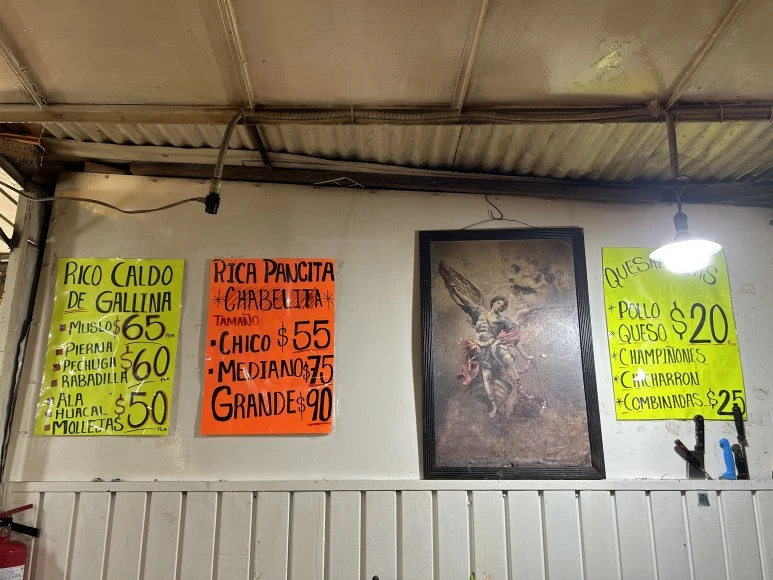 RICO CALDO
DE GALLINA
MUSLO $65
PIERNA
PECHUGA $60
RABADILLA
ALA
HUACAL $50
MOLLEJAS
RICA PANCITA
*CHABELITA*
TAMAÑO
• CHICO $55
• MEDIANO $75
GRANDE $90
* POLLO
* QUESO $20
* CHAMPIÑONES
* CHICHARRON
* COMBINADAS $25